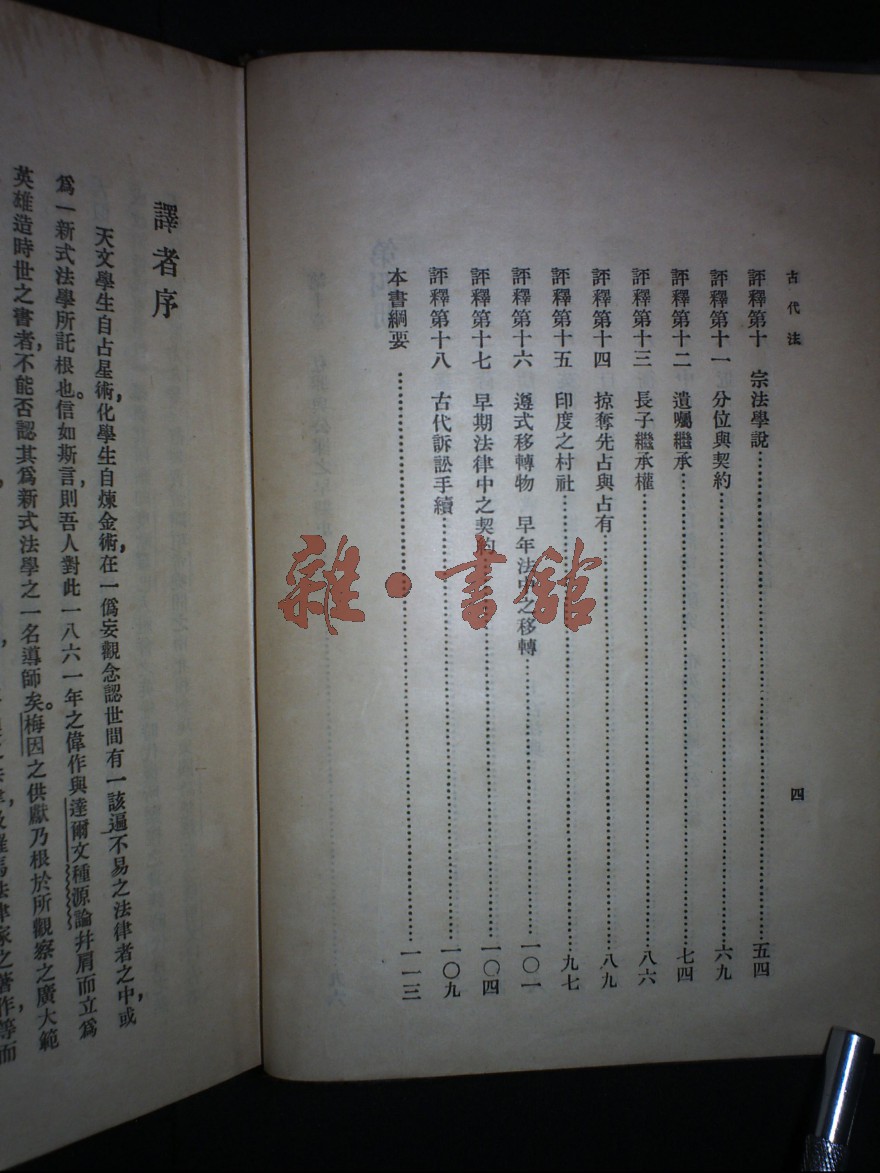 古代法
四
評釋第十 宗法學說 五四
評釋第十一 分位與契約 六九
評釋第十二 遺囑繼承 七四
評釋第十三 長子繼承權 八六
評釋第十四 掠奪先占與占有 八九
評釋第十五 印度之村社 九七
評釋第十六 遵式移轉物 早年法中之移轉 一〇一
評釋第十七 早期法律中之契約 一〇四
評釋第十八 古代訴訟手續 一〇九
本書綱要 一一三
譯者序
天文學生自占星術,化學生自煉金術,在一僞妄觀念認世間有一該遍不易之法律者之中,或
爲一新式法學所託根也。信如斯言,則吾人對此一八六一年之偉作與達爾文種源論幷肩而立爲
英雄造時世之書者,不能否認其爲新式法學之一名導師矣。梅因之供獻乃根於所觀察之廣大範
羅馬法律家之著作等而
雜·書館